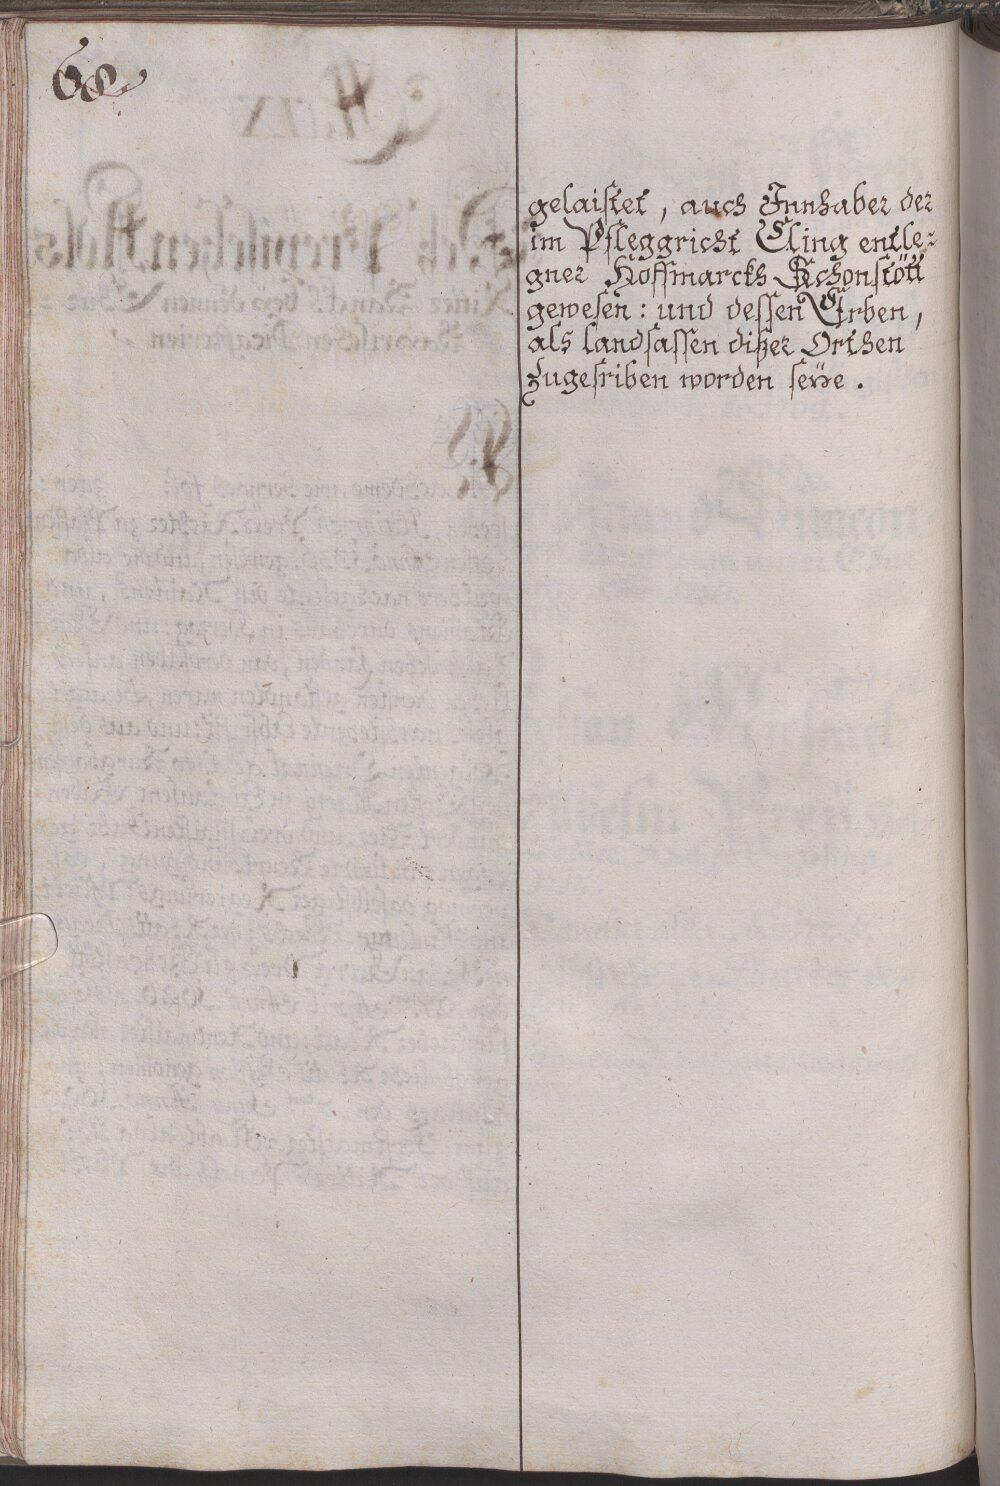 68
gelaistet, auch Innhaber der
im Pfleggricht Cling entle-
gner Hoffmarckh Schonstött
gewesen: und dessen Erben,
als landsassen diser Orthen
zugesriben worden seÿe.